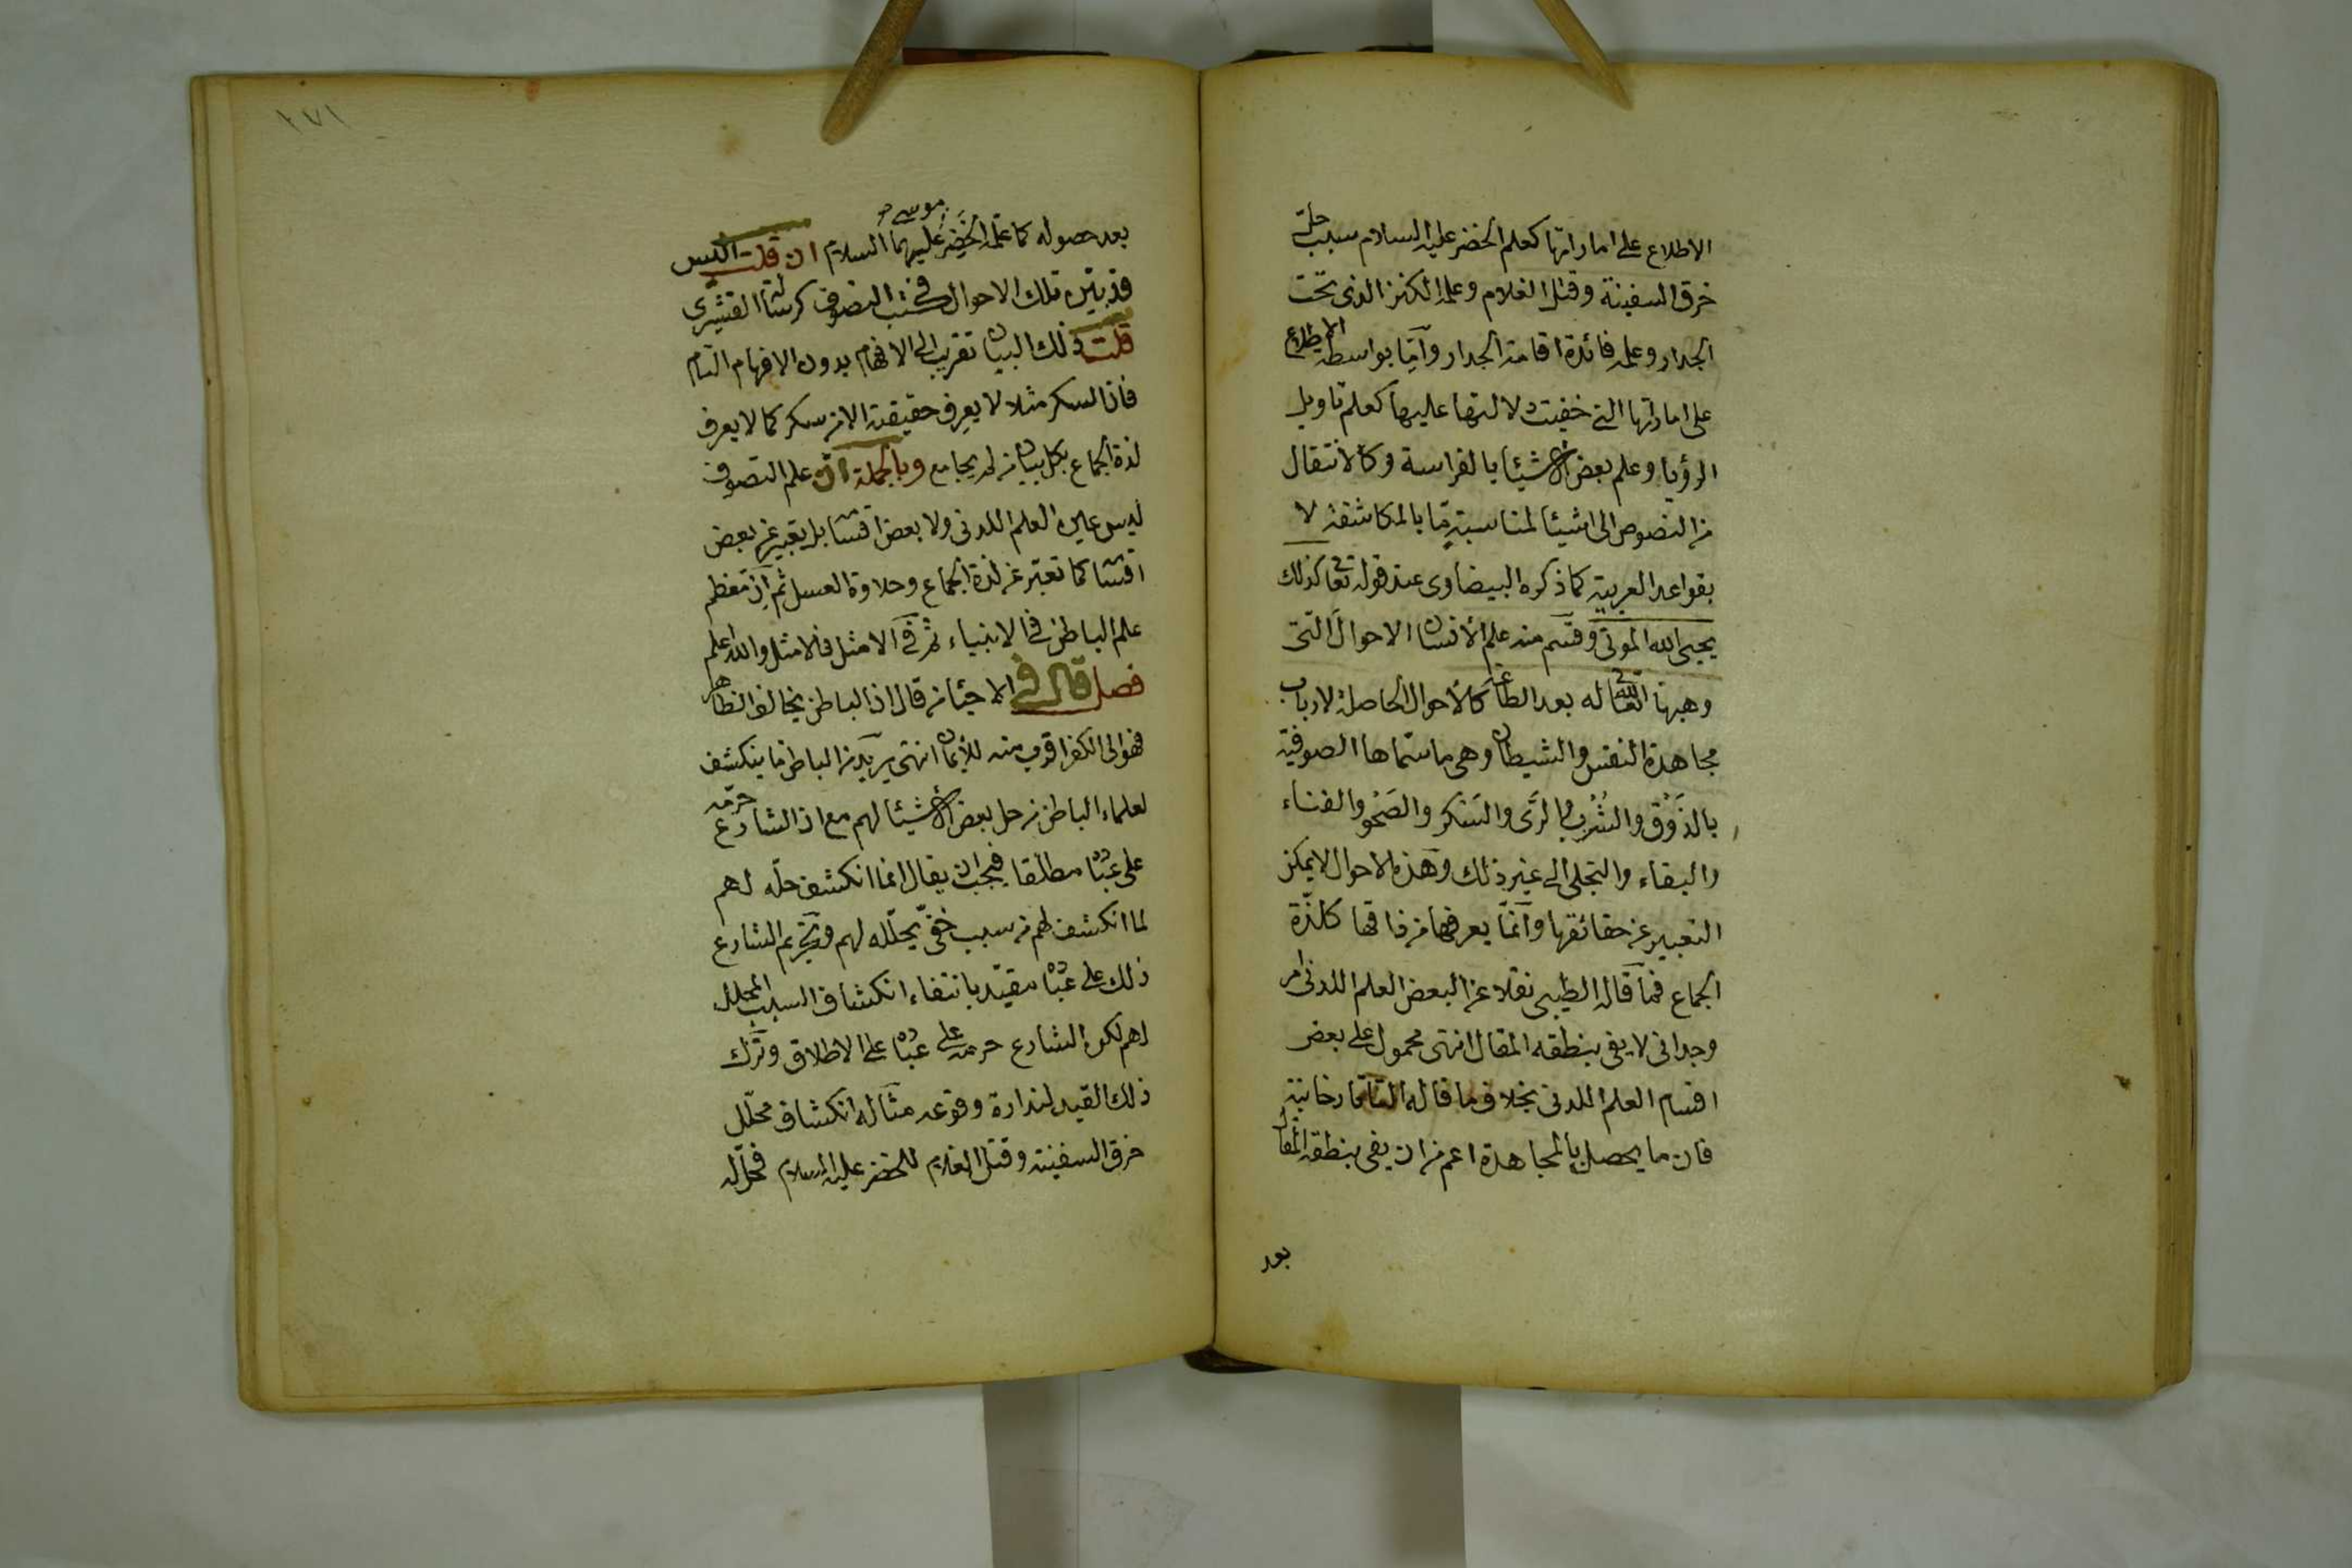 الاطلاع على اماراتها كعلم الخضر عليه السلام سبب حلّ
خرق السفينة وقتل الغلام وعلمه الكنز الذى تحت
الجدار وعلمه فائدة اقامة الجدار وامّا بواسطة الاطلاع
على اماراتها التى خفيت دلالتها عليها كعلم تاويل
الرؤيا وعلم بعض الاشيئا بالفراسة وكالانتقال
من النصوص الى اشيئا لمناسبةٍ مّا بالمكاشفة لا
بقواعد العربية كما ذكره البيضاوى عند قوله تعا كذلك
يحيى الله الموتى وقسم منه علم الانسان الاحوال التى
وهبها الله تعا له بعد الطاعة كالاحوال الحاصلة لارباب
مجاهدة النفس والشيطان وهى ما سمّاها الصوفية
بالذَوْق والشُرْب والرَّى والسُكر والصَحْو والفناء
والبقاء والتجلى الى غير ذلك وهذه الاحوال لا يمكن
التعبير عن حقائقها وانمّا يعرفها من ذاقها كلذّة
الجماع فما قاله الطيبى نقلا عن البعض العلم اللدنى امر
وجدانى لا يفى بنطقه المقال انتهى محمول على بعض
اقسام العلم اللدنى بخلاف ما قاله التاتارخانية
فان ما يحصل بالمجاهدة اعم من ان يفى بنطقه المقال
بعد
٢٧١
بعد حصوله كما علّمه الخَضِر موسى عليهما السلام ان قلت اليس
قد بيّن تلك الاحوال فى كتب التصوف كرسالة القشيرى
قلت ذلك البيان تقريب الى الافهام بدون الافهام التام
فان السكر مثلا لا يعرف حقيقته الا من سكر كما لا يعرف
لذة الجماع بكل بيان من لم يجامع وبالجملة ان علم التصوف
ليس عين العلم اللدنى ولا بعض اقسا بل تعبير عن بعض
اقسا كما تعبّر عن لذة الجماع وحلاوة العسل ثم ان معظم
علم الباطن فى الانبياء ثم فى الامثل فالامثل والله اعلم
فصل قال فى الاحيا من قال ان الباطن يخالف الظاهر
فهو الى الكفر اقرب منه للايمان انتهى يريد من الباطن ما ينكشف
لعلماء الباطن من حل بعض الاشيئا لهم مع ان الشارع حرّمه
على عبا مطلقا فيجب ان يقال انما انكشف حلّه لهم
لما انكشف لهم من سبب خفىّ يحلّله لهم وتحريم الشارع
ذلك على عبا مقيّد بانتفاء انكشاف السبب المحلل
لهم لكن الشارع حرمه على عبا على الاطلاق وترك
ذلك القيد لندارة وقوعه مثاله انكشاف محلّل
خرق السفينة وقتل الغلام للخضر عليه السلام فحلّ له